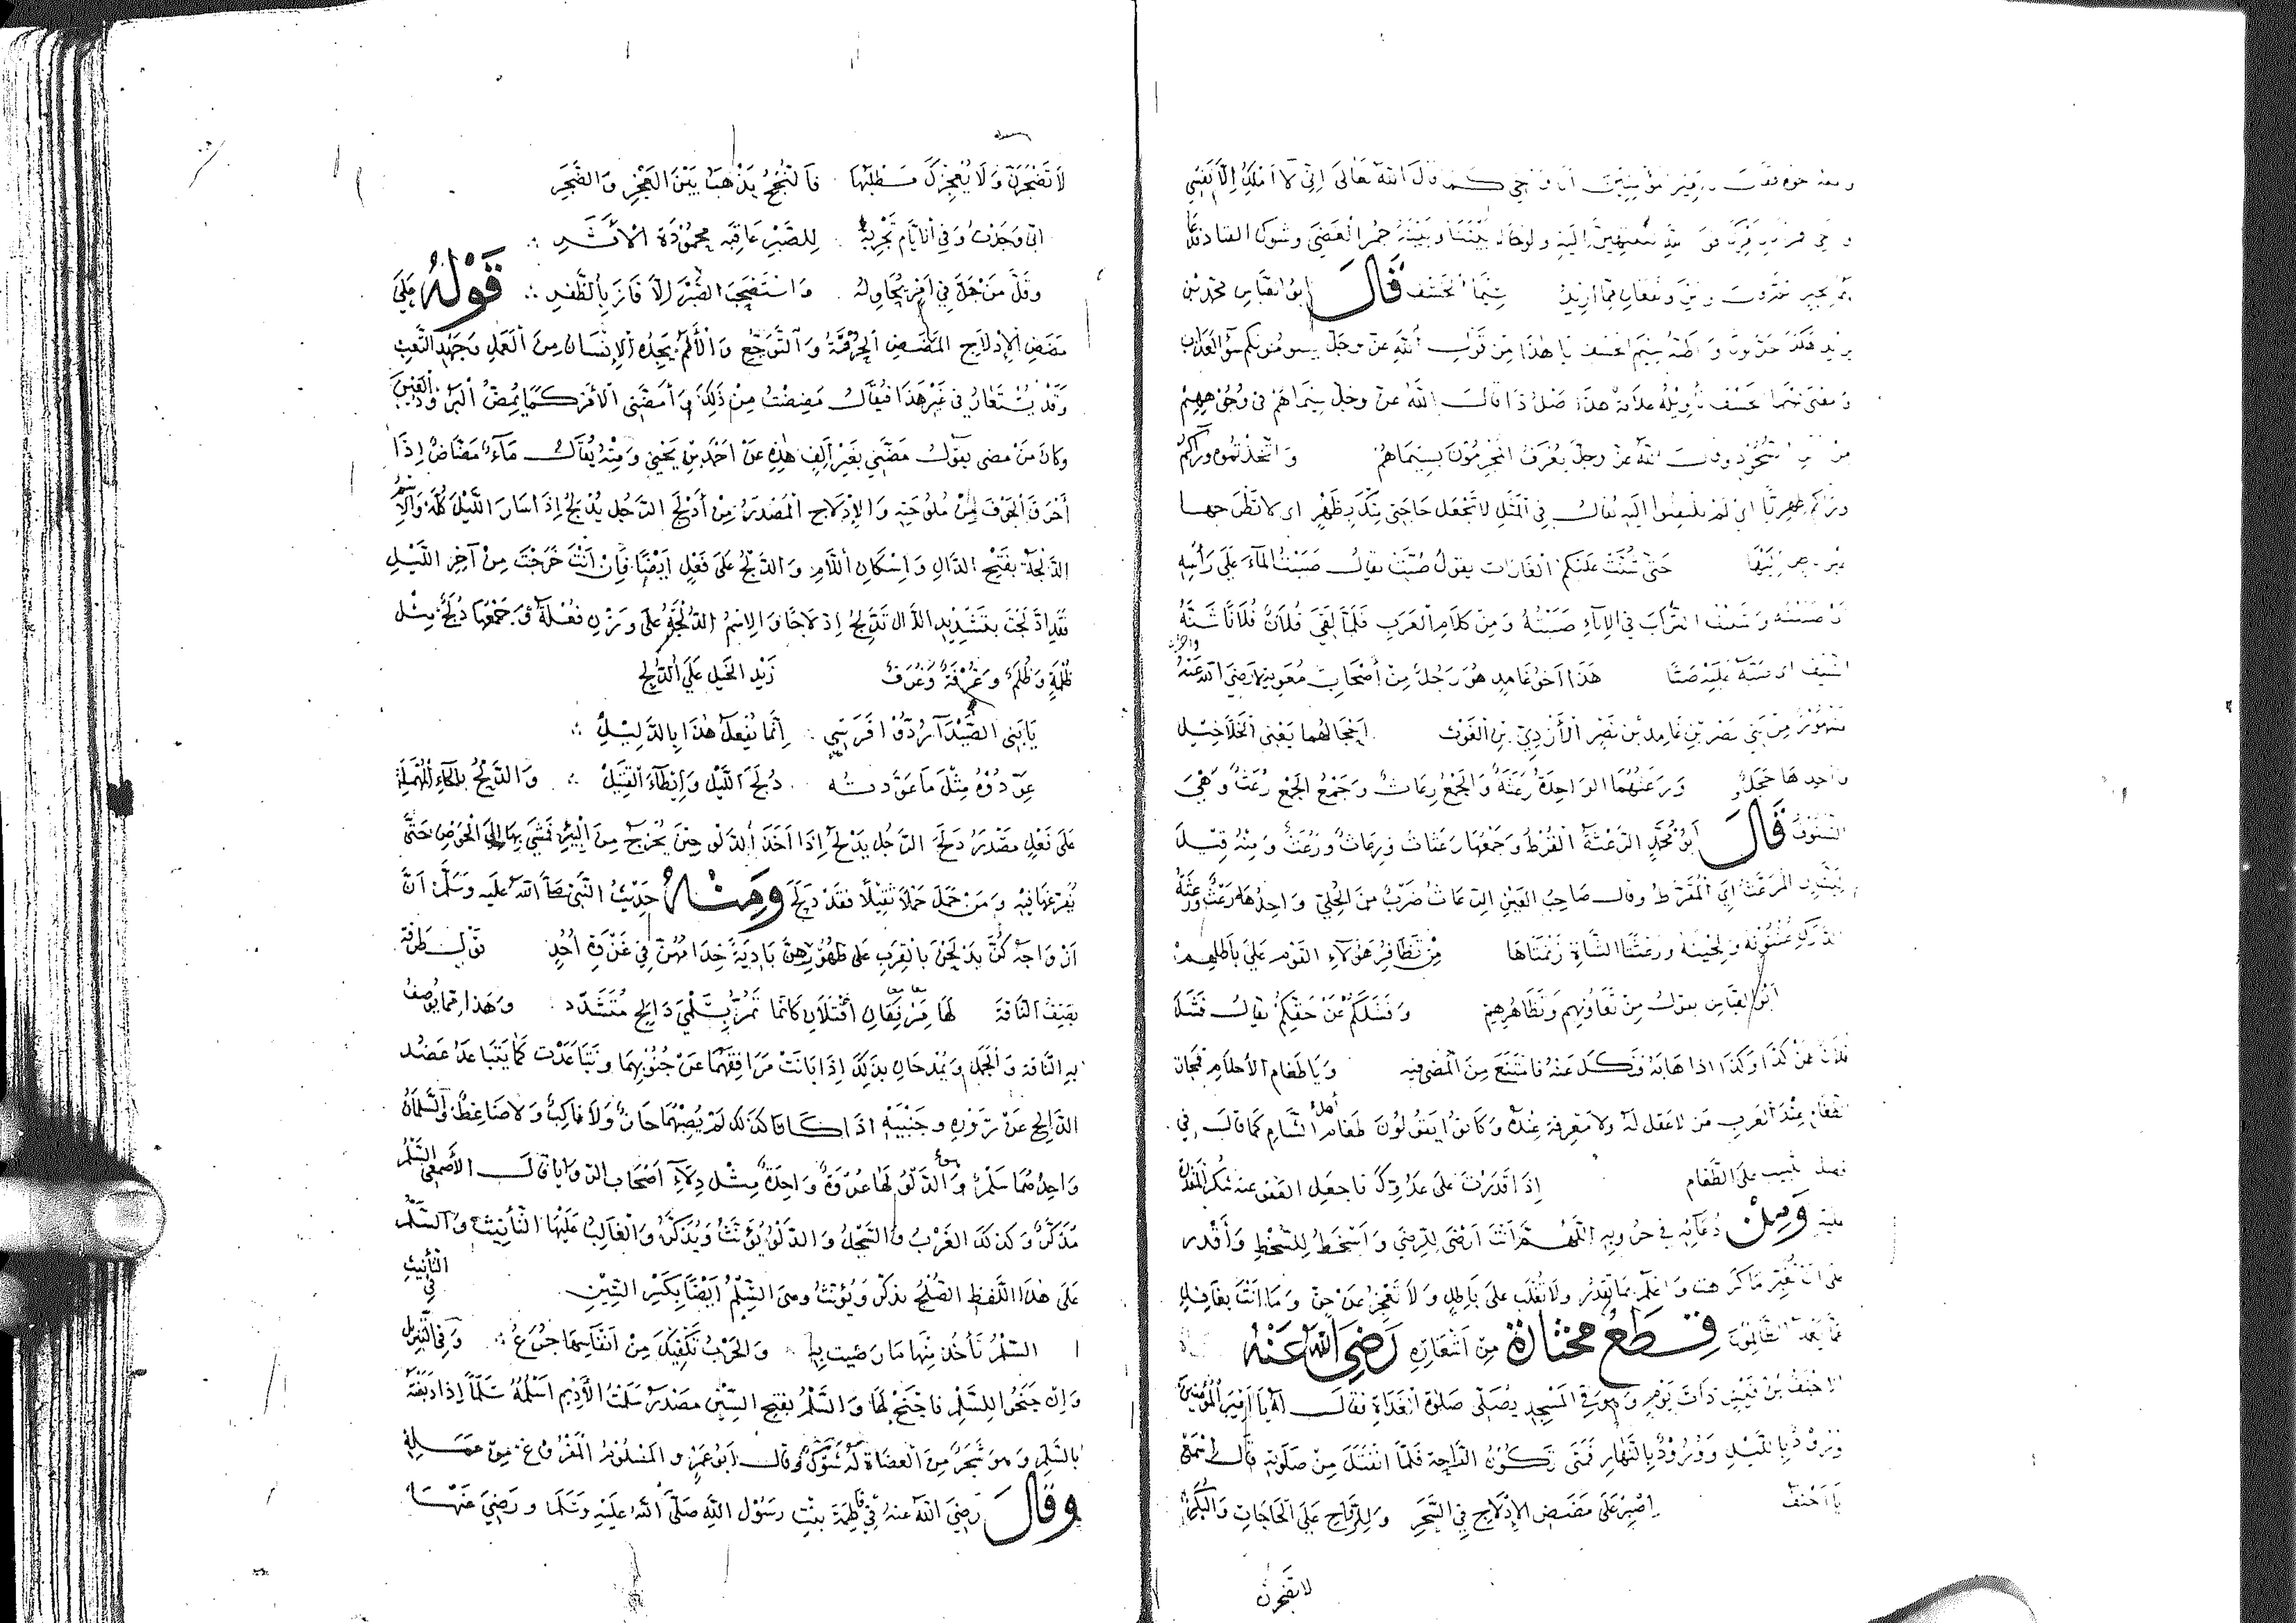 فقال يا امير المؤمنين انا واخي كما قال الله تعالى اني لا املك الا نفسي
واخي فمرنا بامرك فوالله لننتهين اليه ولو حال بيننا وبينه جمر الغضى وشوك القتاد فدعا
لهما بخير سيما الخسف قَالَ ابو العباس محمد بن
يزيد هكذا حدثونا واظنه سيم الخسف يا هذا من قول الله عز وجل يسومونكم سوء العذاب
ومعنى سيما الخسف تأويله علامة هذا اصل ذا قال الله عز وجل سيماهم في وجوههم
من اثر السجود وقال الله عز وجل يعرف المجرمون بسيماهم واتخذتموه وراكم
وراكم ظهريا اي لم تلتفتوا اليه يقال في المثل لا تجعل حاجتي منك بظهر اي لا تطرحها
حتى شنت عليكم الغارات يقول صبت يقال صببت الماء على رأسه
وشننت الشراب في الاناء صببته ومن كلام العرب فلما لقي فلان فلانا شنه
السيف اي صبه عليه صبا هذا اخو غامد هو رجل من اصحاب معوية رضي الله عنه
مشهور من بني غامد بن نصر الأزدي بن الغوث احجالهما يعني الخلاخيل
واحدها حجل ورعثهما الواحدة رعثة والجمع رعاث وجمع الجمع رعث وهي
الشنوف قَالَ ابو محمد الرعثة القرط وجمعها رعثات ورعاث ورعث ومنه قيل
المرعث اي المقرط وقال صاحب العين الرعاث ضرب من الحلي واحدها رعث ورعثة
الديك عثنونه ولحيته ورعثتا الشاة زنمتاها من تظافر هؤلاء القوم على باطلهم
ابو العباس يقول من تعاونهم وتظاهرهم وفشلكم عن حقكم يقال فشل
فلان عن كذا وكذا اذا هابه فنكل عنه فامتنع من المضي فيه ويا طغام الأحلام فمجاز
الطغام عند العرب من لا عقل له ولا معرفة عنده وكانوا يقولون طغام اهل الشام كما قال في
على الطغام اذا قدرت على عدوك فاجعل العفو عنه شكر القدرة
عليه وَمِنْ دعائه في حروبه اللهم انت ارضى للرضي واسخط للسخط وأقدر
على ان تغير ما كرهت واعلم بما تقدر ولا تغلب على باطل ولا تعجز عن حق وما انت بغافل
عما يعمل الظالمون قِطَعٌ مختارة من اشعاره رَضِيَ اللهُ عَنْهُ
الاحنف بن قيس ذات يوم وهو في المسجد يصلى صلوة الغداة فقال له يا امير المؤمنين
دؤوب بالليل ودؤوب بالنهار فمتى تكون الراحة فلما انفتل من صلوته قال اسمع
يا احنف اصبر على مضض الإدلاج في السحر وللرواح على الحاجات والبكر
لا تضجرن
لا تضجرن ولا يعجزك مطلبها فالنجح يذهب بين العجز والضجر
اني وجدت وفي الايام تجربة للصبر عاقبة محمودة الأثر
وقل من جد في امر يحاوله واستصحب الصبر الا فاز بالظفر قَوْلُهُ على
مضض الإدلاج المضض الحرقة والتوجع والألم يجده الإنسان من العمل وجهد التعب
وقد يستعار في غير هذا فيقال مضضت من ذلك وأمضني الأمر كما يمض
وكان من مضى يقول مضني بغير ألف هذه عن احمد بن يحيى ومنه يقال ماء مضاض اذا
أحرق الجوف من ملوحته والإدلاج المصدر من أدلج الرجل يدلج اذا سار الليل كله والاسم
الدلجة بفتح الدال واسكان اللام والدلج على فعل ايضا فإن انت خرجت من آخر الليل
فقد ادلجت بتشديد الدال تدلج ادلاجا والاسم الدلجة على وزن فعلة وجمعها دلج مثل
ظلمة وظلم وغرفة وغرف زيد الخيل على الدلج
يا بني الصيداء ردوا فرسي انما يفعل هذا بالذليل
عودوه مثل ما عودته دلج الليل وايطاء القتيل والدلح بالحاء المهملة
على فعل مصدر دلح الرجل يدلح اذا اخذ الدلو حين يخرج من البير فمشى بها الى الحوض حتى
يفرغها فيه ومن حمل حملا ثقيلا فقد دلح وَمِنْهُ حديث النبي صلى الله عليه وسلم ان
ازواجه كن يدلحن بالقرب على ظهورهن بادية خدامهن في غزوة أحد قول طرفة
يصف الناقة لها مرفقان أفتلان كانما تمر بسلمي دالح متشدد وهذا مما يوصف
به الناقة والجمل ويمدحان بذلك اذا بانت مرافقهما عن جنوبهما وتباعدت كما يتباعد عضد
الدالح عن زوره وجنبيه اذا كانا كذلك لم يصبهما حاز ولا ناكت ولا ضاغط والسلمان
واحدهما سلم وهو الدلو لها عروة واحدة مثل دلاء اصحاب الروايا قال الأصمعي السلم
مذكر وكذلك الغرب والسجل والدلو يؤنث ويذكر والغالب عليها التأنيث والسلم
على هذا اللفظ الصلح يذكر ويؤنث وهي السلم ايضا بكسر السين في التأنيث
السلم تأخذ منها ما رضيت به والحرب تكفيك من انفاسها جرع وفي التنزيل
وان جنحوا للسلم فاجنح لها والسلم بفتح السين مصدر سلمت الأديم اسلمه سلما اذا دبغته
بالسلم وهو شجر من العضاة له شوك وقال ابو عمرو والمسلوم المفروغ من عمله
وقَالَ رضي الله عنه في فاطمة بنت رسول الله صلى الله عليه وسلم ورضي عنها